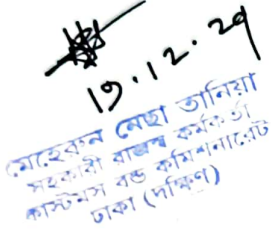 ১৭.১২.২৭
মোহেরুন নেছা তানিয়া
সহকারী রাজস্ব কর্মকর্তা
কাস্টমস বন্ড কমিশনারেট
ঢাকা (দক্ষিণ)